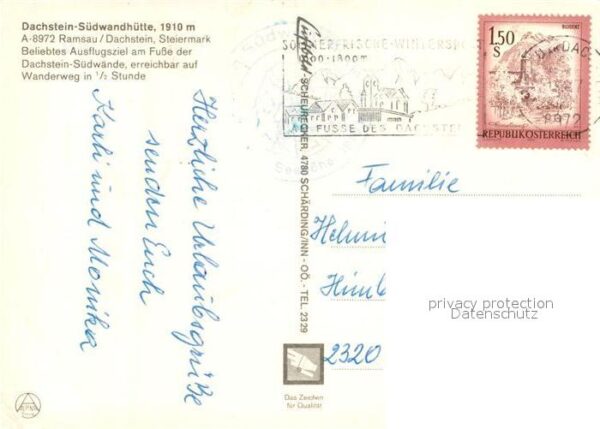 Dachstein-Südwandhütte, 1910 m
A-8972 Ramsau/Dachstein, Steiermark
Beliebtes Ausflugsziel am Fuße der
Dachstein-Südwände, erreichbar auf
Wanderweg in ½ Stunde
Herzliche Urlaubsgrüße
senden Euch
Karli und Monika
SCHEURECKER, 4780 SCHÄRDING/INN - OÖ. - TEL. 23 29
SOMMERFRISCHE-WINTERSPO
AM FUSSE DES DACHSTE
8972
1.50
S
REPUBLIK ÖSTERREICH
Familie
Helmu
Himb
2320
privacy protection
Datenschutz
Das Zeichen
für Qualität